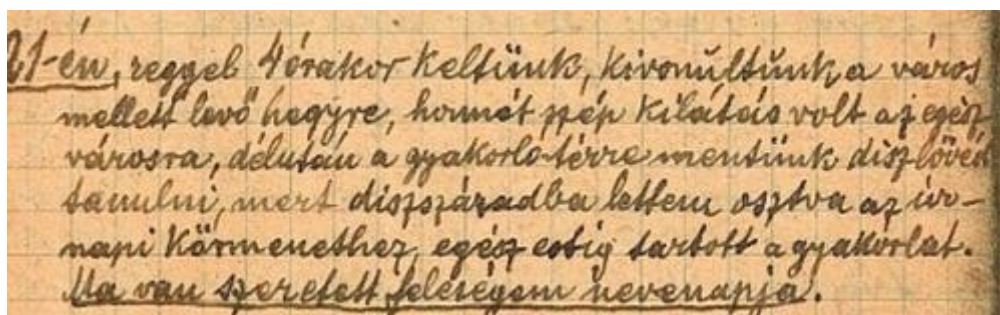 21-én, reggel 4 órakor keltünk, kivonúltunk a város
mellett levő hegyre, honnét szép kilátás volt az egész
városra, délután a gyakorlo-térre mentünk diszlövést
tanulni, mert diszszáradba lettem osztva az úr-
napi Körmenethez, egész estig tartott a gyakorlat.
Ma van szeretett feleségem nevenapja.